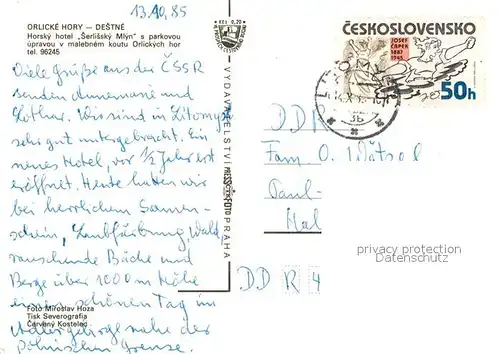 13.10.85
ORLICKÉ HORY — DEŠTNÉ
Horský hotel „Šerlišský Mlýn" s parkovou
úpravou v malebném koutu Orlických hor
tel. 96245
Viele Grüße aus der ČSSR
senden Annemarie und
Lothar. Wir sind in Litomyšl
sehr gut untergebracht. Ein
neues Hotel, vor ½ Jahr erst
eröffnet. Heute haben wir
bei herrlichem Sonnen-
schein, Laubfärbung, Wald,
rauschende Bäche und
Berge über 1000 m Höhe
einen schönen Tag im
Adlergebirge nahe der
polnischen Grenze.
Foto Miroslav Hoza
Tisk Severografia
Červený Kostelec
Kčs 0,20
VYDAVATELSTVÍ PRAHA
ČESKOSLOVENSKO
JOSEF
ČAPEK
1887
1945
50h
DDR
Fam. O.
Paul-
DDR 4
privacy protection
Datenschutz